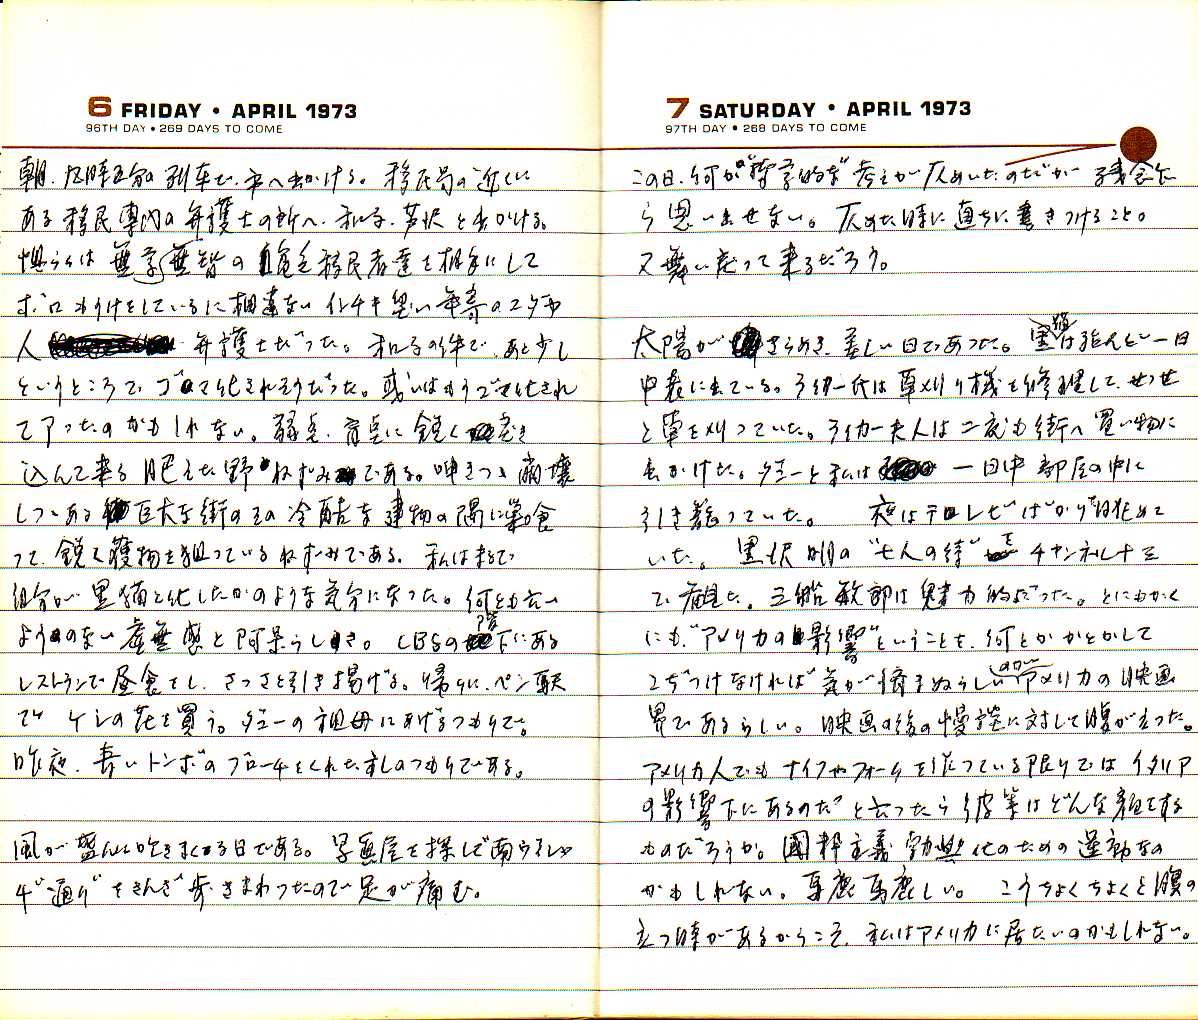 6 FRIDAY • APRIL 1973
96TH DAY • 269 DAYS TO COME
朝、 列車で、市へ出かける。移民局の近くに
ある移民専門の弁護士の所へ、和子、芦沢と出かける。
無学無智の 移民者達を相手にして
ボロもうけをしているに相違ないインチキ臭い年寄のユダヤ
人 弁護士だった。和子の件で、あと少し
というところでゴマ化されそうだった。或いはもうゴマ化され
てアったのかもしれない。弱点、盲点に鋭く突き
込んで来る肥えた野ねずみである。呻きつゝ崩壊
しつゝある巨大な街のその冷酷な建物の隅に巣喰
って、鋭く獲物を狙っているねずみである。私はまるで
自分が黒猫と化したかのような気分になった。何とも云い
ようのない虚無感と阿呆らしさ。CBSの階下にある
レストランで昼食をし、さっさと引き揚げる。帰りに、ペン駅
で ケシの花を買う。ダニーの祖母にあげるつもりで。
昨夜、青いトンボのブローチをくれた礼のつもりである。
風が盛んに吹きまくる日である。写真屋を探して
通りをさんざ歩きまわったので足が痛む。
7 SATURDAY • APRIL 1973
97TH DAY • 268 DAYS TO COME
この日、何か“哲学的な”考えが仄めいたのだが 残念乍
ら思い出せない。仄めいた時に直ちに書きつけること。
又舞い戻って来るだろう。
太陽がきらめき、美しい日であった。黒猫は殆んど一日
中表に出ている。ライカー氏は草刈り機を修理して、せっせ
と草を刈っていた。ライカー夫人は二度も街へ買い物に
出かけた。ダニーと私は 一日中部屋の中に
引き籠っていた。 夜はテレビばかり眺めて
いた。黒沢明の“七人の侍”をチャンネル十三
で観た。三船敏郎は魅力的だった。とにもかく
にも、“アメリカの影響”ということを、何とかかとかして
こぢつけなければ気が済まぬらしいのがアメリカの映画
界であるらしい。映画の後の慢談に対して腹が立った。
アメリカ人でもナイフやフォークを使っている限りではイタリア
の影響下にあるのだ”と云ったら彼等はどんな顔をする
ものだろうか。國粹主義 化のための運動なの
かもしれない。馬鹿馬鹿しい。 こうちょくちょくと腹の
立つ時があるからこそ、私はアメリカに居たいのかもしれない。